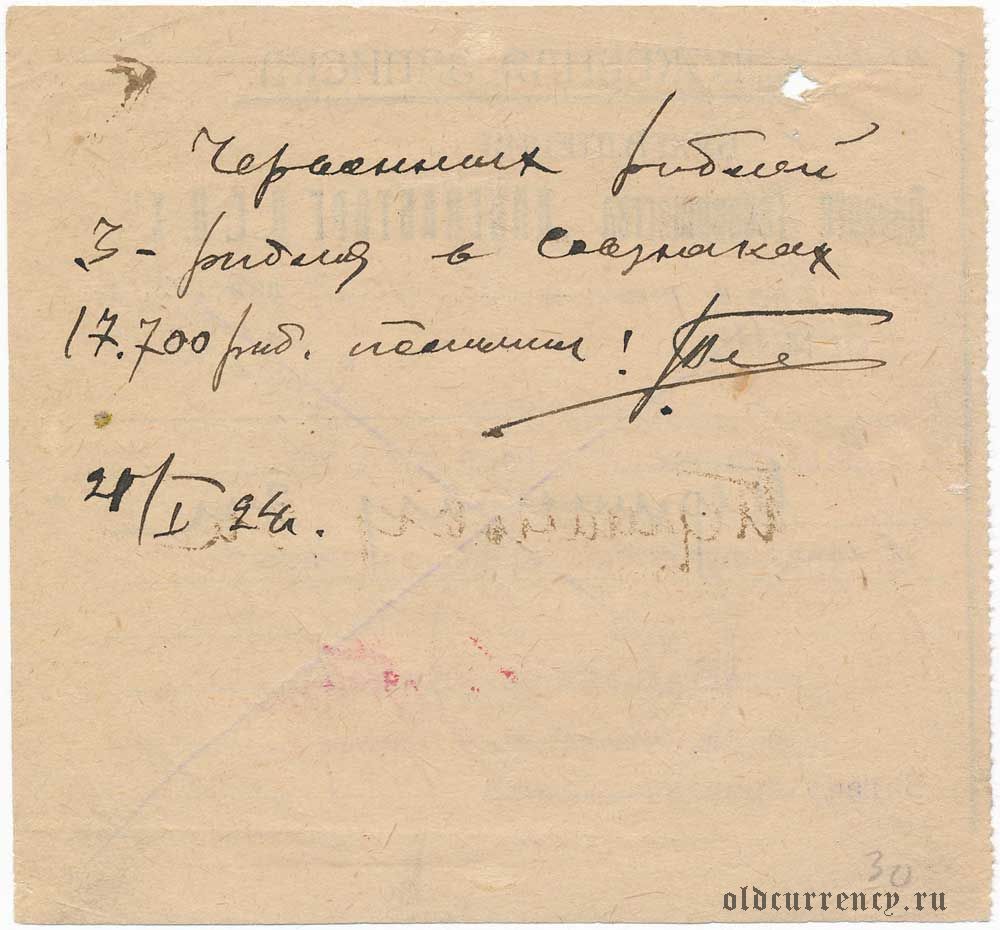 Червонных рублей
3- рубля в совзнаках
17.700 руб. получил!
21/I 24г.
30
oldcurrency.ru